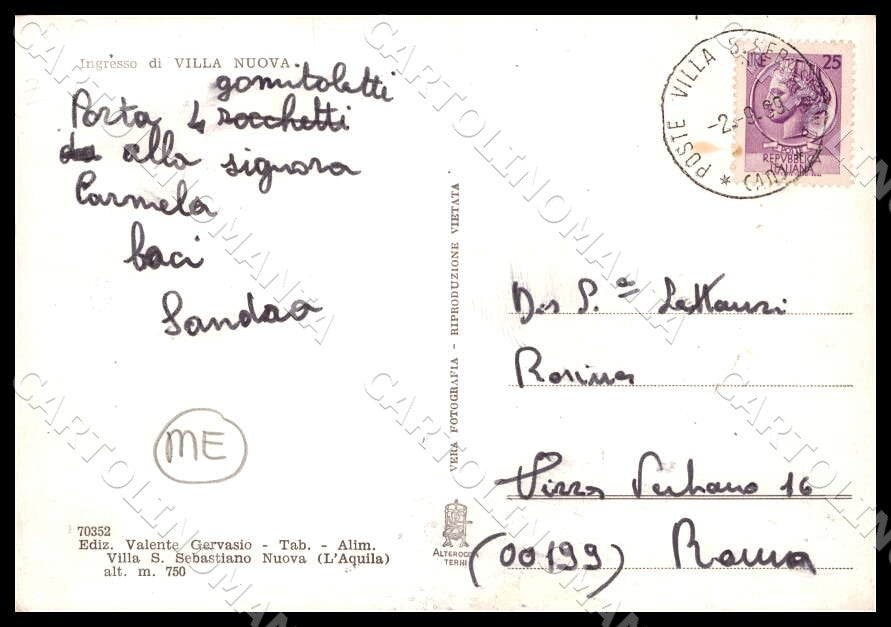 Ingresso di VILLA NUOVA
gomitoletti
Porta 4 rocchetti
alla signora
Carmela
baci
Sandra
ME
70352
Ediz. Valente Gervasio - Tab. - Alim.
Villa S. Sebastiano Nuova (L'Aquila)
alt. m. 750
VERA FOTOGRAFIA - RIPRODUZIONE VIETATA
ALTEROCCA
TERNI
POSTE VILLA S.SEB
-2.-9.69
25
POSTE
REPVBBLICA
ITALIANA
Rosina
Piazza Verbano 16
(00199) Roma
CARTOLINOMANIA